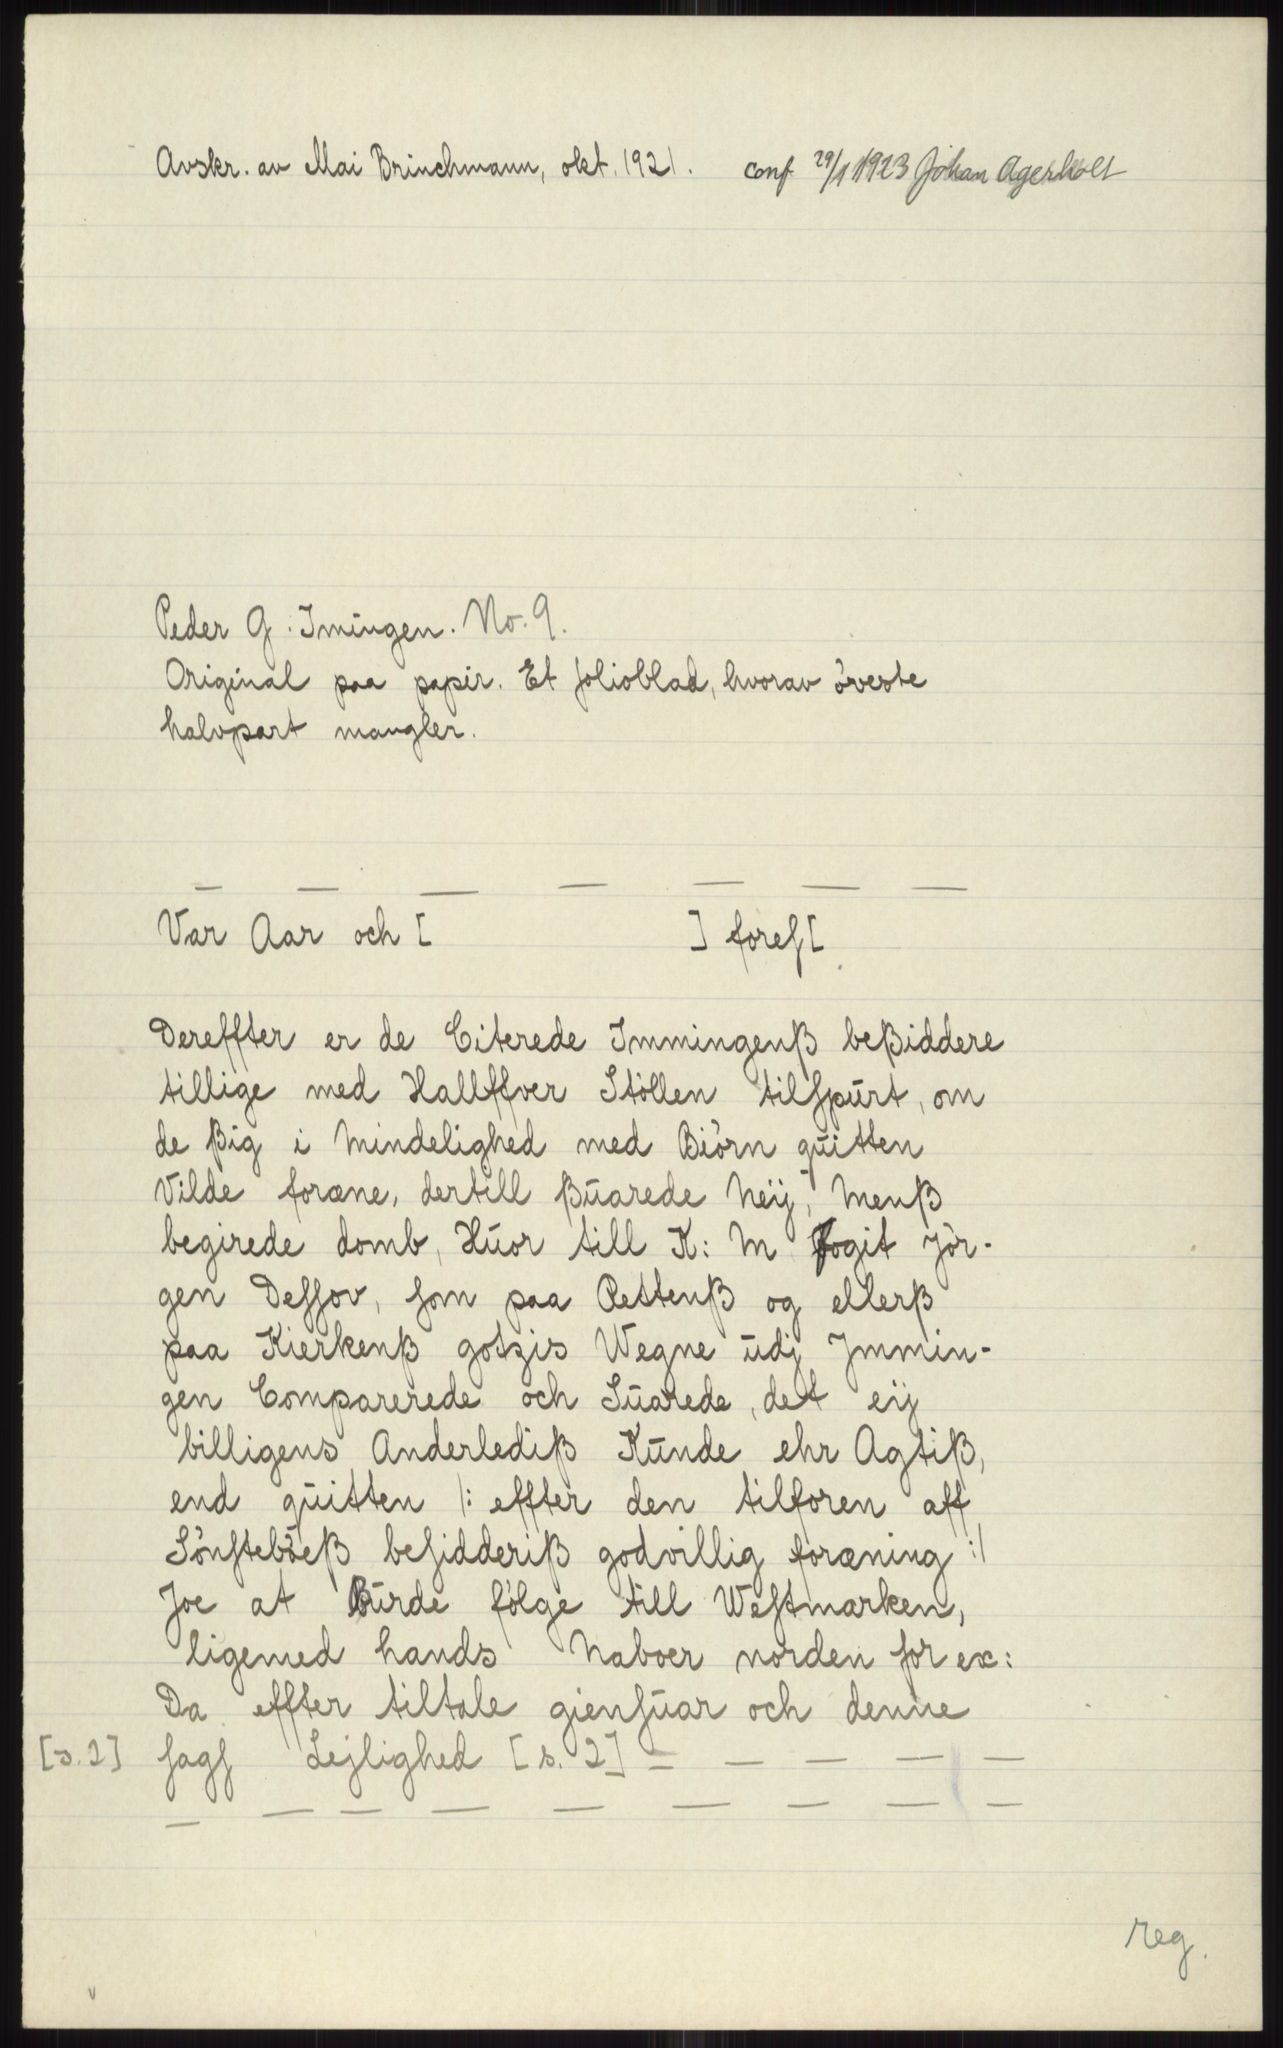 Avskr. av Mai Brinchmann, okt. 1921. conf 29/1 1923 Johan Agerholt
Peder G. Imingen. No. 9.
Original paa papir. Et folioblad, hvorav øverste
halvpart mangler.
— — — — — — —
Var Aar och [ ] foreſ[
Dereffter er de Citerede Immingenß beßiddere
tillige med Hallffver Stöllen tilſpurt, om
de ßig i Mindelighed med Biörn quitten
Vilde foræne, dertill ßuarede Neij, Menß
begirede domb, Huor till K: M Fogit Jör-
gen Deſſov, ſom paa Rettenß og ellerß
paa Kierkenß gotzis Wegne udj Immin-
gen Comparerede och Suarede, det eij
billigens Anderlediß Kunde ehr Agtiß,
end quitten /: effter den tilforen aff
Sönſteböeß beſidderiß godvillig foræning :/
Joe at Burde fölge till Weſtmarken,
ligemed hands Naboer norden for ex:
Da effter tiltale gienſuar och denne
[s. 2] ſagſ Lejlighed [s. 2] — — — — —
— — — — — — — —
reg.